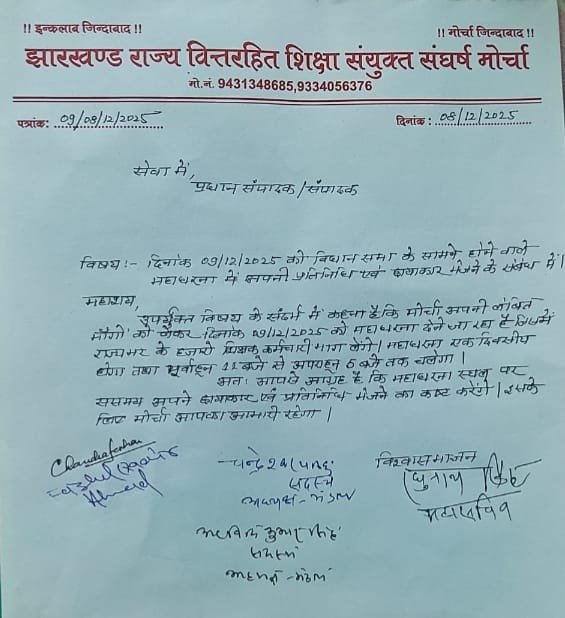 !! इन्कलाब जिन्दाबाद !!
!! मोर्चा जिन्दाबाद !!
झारखण्ड राज्य वित्तरहित शिक्षा संयुक्त संघर्ष मोर्चा
मो.नं. 9431348685,9334056376
पत्रांक: 09/08/12/2025
दिनांक : 08/12/2025
सेवा में,
प्रधान संपादक/संपादक
विषय:- दिनांक 09/12/2025 को विधान सभा के सामने होने वाले
महाधरना में अपनी प्रतिनिधि एवं छायाकार भेजने के संबंध में।
महाशय,
उपर्युक्त विषय के संदर्भ में कहना है कि मोर्चा अपनी लंबित
माँगों को लेकर दिनांक 09/12/2025 को महाधरना देने जा रहा है जिसमें
राज्यभर के हजारों शिक्षक कर्मचारी भाग लेंगे। महाधरना एक दिवसीय
होगा तथा पूर्वाह्न 11 बजे से अपराह्न 5 बजे तक चलेगा।
अतः आपसे आग्रह है कि महाधरना स्थल पर
ससमय अपने छायाकार एवं प्रतिनिधि भेजने का कष्ट करेंगे। इसके
लिए मोर्चा आपका आभारी रहेगा।
विश्वासभाजन
रघुनाथ सिंह
महासचिव
Fazlul Ahmed
सदस्य
अध्यक्ष-मंडल
अरविन्द कुमार सिंह
सदस्य
अध्यक्ष-मंडल